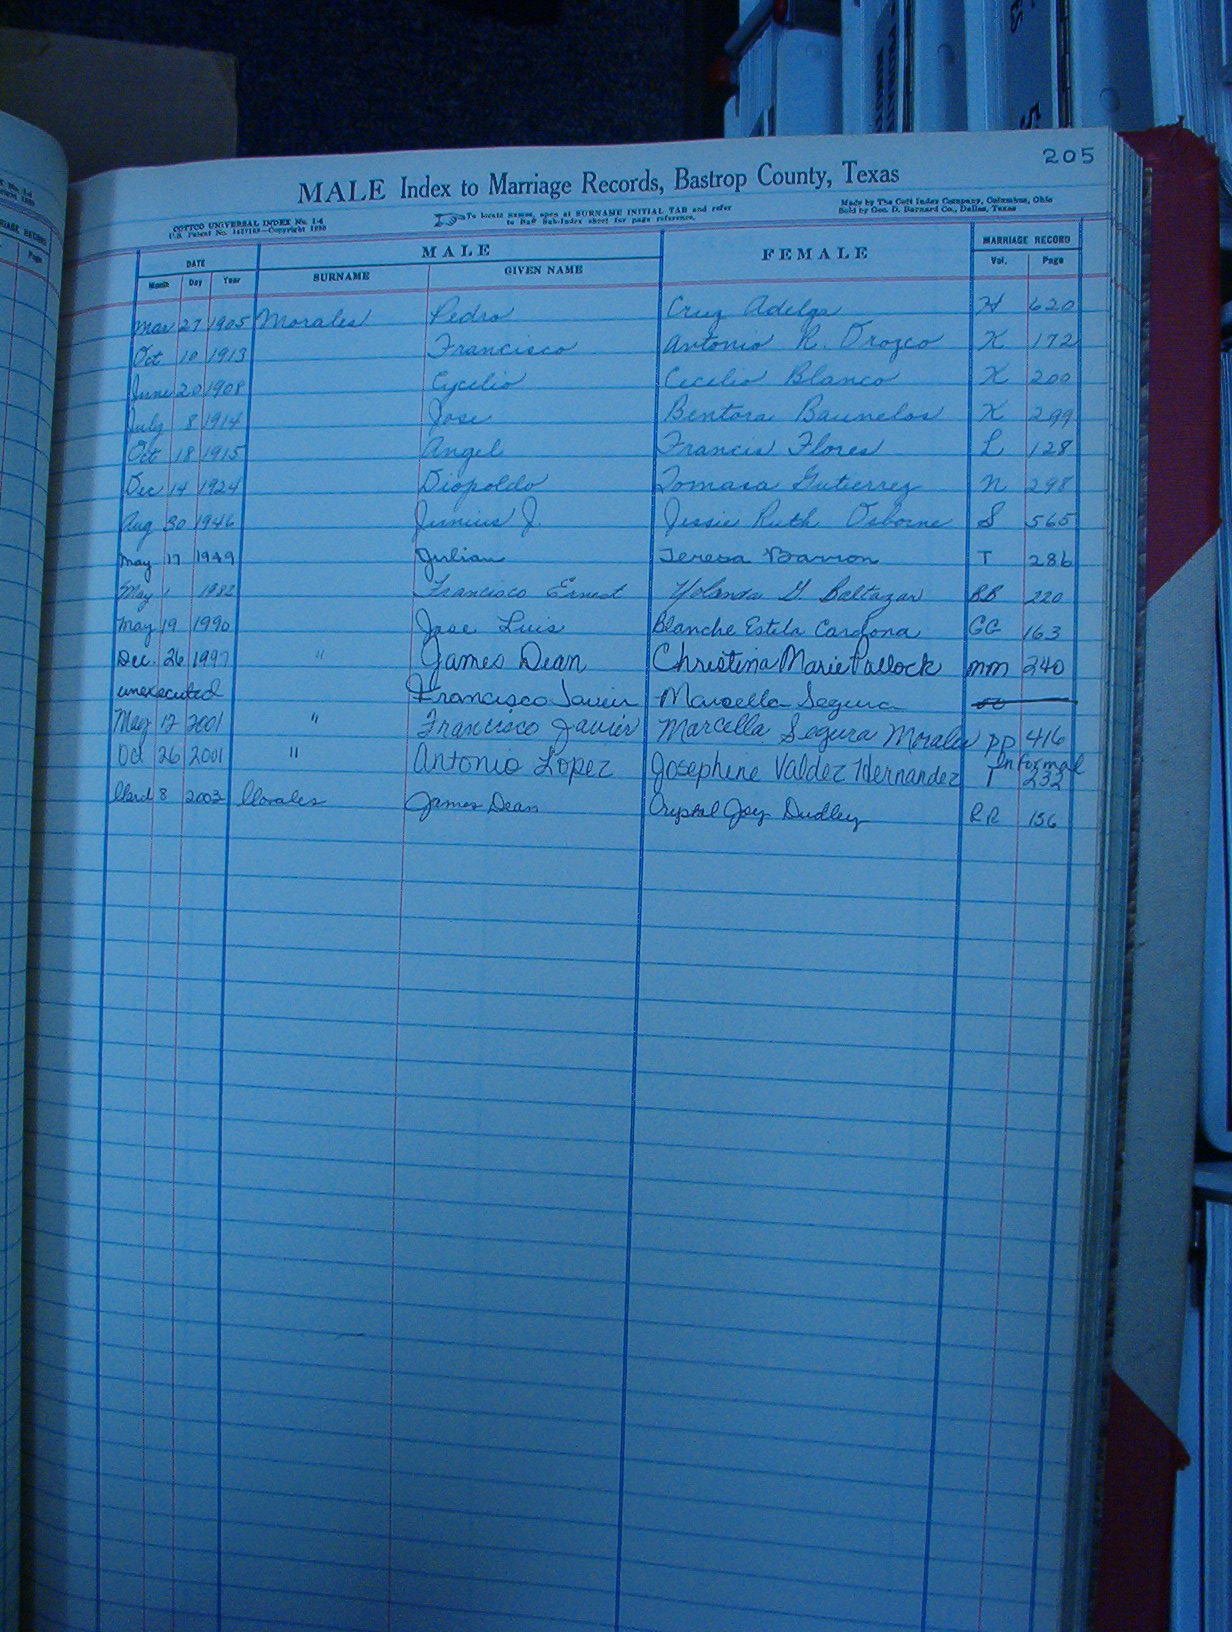 205
MALE Index to Marriage Records, Bastrop County, Texas
COTTCO UNIVERSAL INDEX No. 1-4
U.S. Patent No. Copyright
To locate names, open at SURNAME INITIAL TAB and refer
to Sub-Index sheet for page reference.
Made by The Cott Index Company, Columbus, Ohio
Sold by Geo. D. Barnard Co., Dallas, Texas
DATE MALE FEMALE MARRIAGE RECORD
Month Day Year SURNAME GIVEN NAME Vol. Page
Mar 27 1905 Morales Pedro Cruz Adelga H 620
Oct 10 1913 Francisco Antonio R. Orozco K 172
June 20 1908 Cycelio Cecilio Blanco K 200
July 8 1914 Jose Bentora Baunelos K 299
Oct 18 1915 Angel Francis Flores L 128
Dec 14 1924 Diopoldo Tomasa Gutierrez N 298
Aug 30 1946 Junius J. Jessie Ruth Osborne S 565
May 17 1949 Julian Teresa Barron T 286
May 1 1982 Francisco Ernest Yolanda G. Baltazar BB 220
May 19 1990 Jose Luis Blanche Estela Cardona GG 163
Dec. 26 1997 " James Dean Christina Marie Pallock mm 240
unexecuted Francisco Javier Marcella Segura
May 12 2001 " Francisco Javier Marcella Segura Morales PP 416
Oct 26 2001 " Antonio Lopez Josephine Valdez Hernandez Informal 1 232
March 8 2003 Morales James Dean Crystal Joy Dudley RR 156